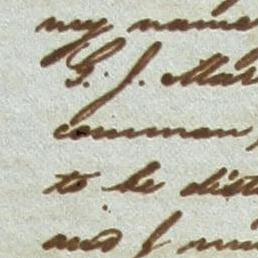 my name
G. J. Mar
common,
to be dist
and I mu